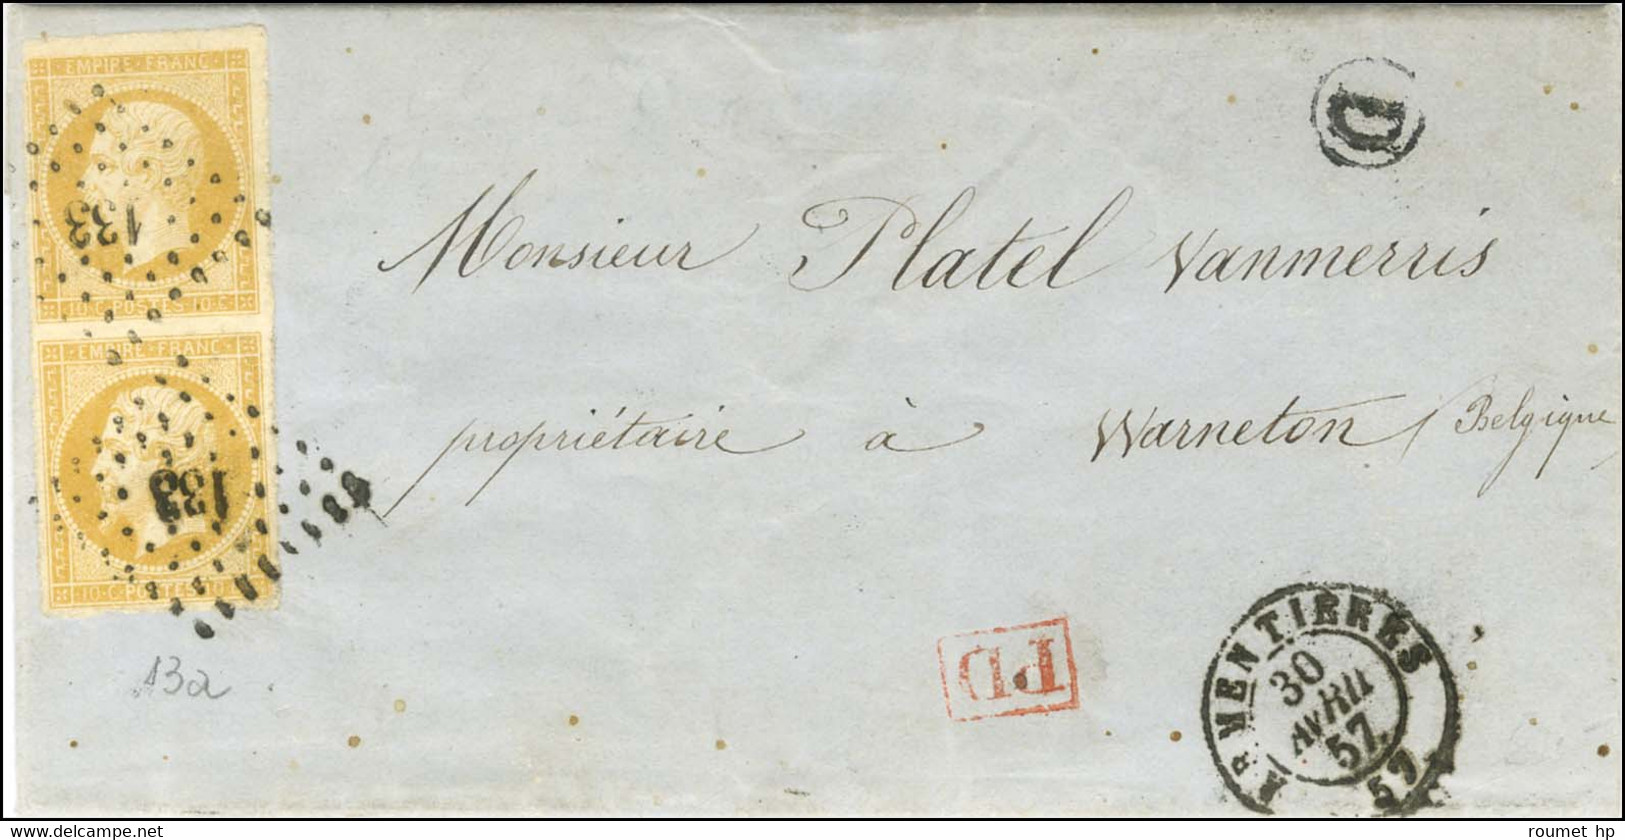 EMPIRE FRANC
133
10 C POSTES 10 C
EMPIRE FRANC
133
10 C POSTES 10 C
D
Monsieur Platel Vanmerris
propriétaire à Warneton (Belgique)
13a
PD
ARMENTIERES
30
AVRIL
57
57
delcampe.net
roumet hp